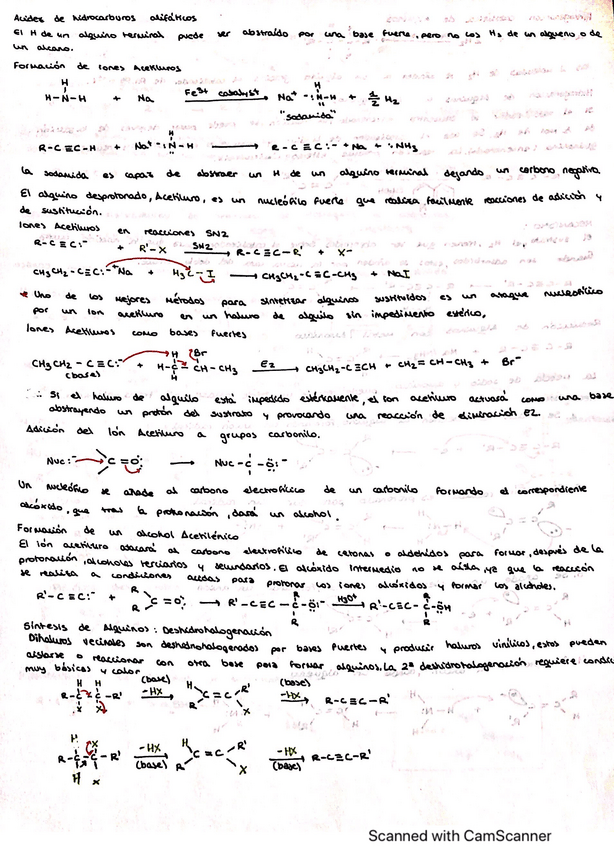 Acidez de hidrocarburos alifáticos
El H de un alquino terminal puede ser abstraído por una base fuerte, pero no los Hs de un alqueno o de
un alcano.
Formación de Iones Acetiluros
H-N-H + Na Fe3+ catalyst Na+ -:N-H + 1/2 H2
"sodamida"
R-C≡C-H + Na+ -:N-H → R-C≡C:- +Na + :NH3
La sodamida es capaz de abstraer un H de un alquino terminal dejando un carbono negativo.
El alquino desprotonado, Acetiluro, es un nucleófilo fuerte que realiza facilmente reacciones de adición y
de sustitución.
Iones Acetiluros en reacciones SN2
R-C≡C:- + R'-X SN2 → R-C≡C-R' + X-
CH3CH2-C≡C:- +Na + H3C-I → CH3CH2-C≡C-CH3 + NaI
* Uno de los mejores métodos para sintetizar alquinos sustituidos es un ataque nucleofílico
por un ion acetiluro en un haluro de alquilo sin impedimento estérico.
Iones Acetiluros como bases fuertes
H Br
CH3CH2-C≡C:- + H-C-CH-CH3 E2 → CH3CH2-C≡CH + CH2=CH-CH3 + Br-
(base) H
∴ Si el haluro de alquilo está impedido estéricamente, el ion acetiluro actuará como una base
abstrayendo un protón del sustrato y provocando una reacción de eliminación E2.
Adición del Ión Acetiluro a grupos carbonilo.
Nuc:- C=O: → Nuc-C-O:-
Un nucleófilo se añade al carbono electrofílico de un carbonilo formando el correspondiente
alcóxido, que tras la protonación, dará un alcohol.
Formación de un alcohol Acetilénico
El ión acetiluro atacará al carbono electrofílico de cetonas o aldehídos para formar, después de la
protonación, alcoholes terciarios y secundarios. El alcóxido intermedio no se aísla, ya que la reacción
se realiza a condiciones acidas para protonar los iones alcóxidos y formar los alcholes.
R'-C≡C:- + R C=O: → R'-C≡C-C-O:- H3O+ → R'-C≡C-C-OH
R R R
Síntesis de Alquinos: Deshidrohalogenación
Dihaluros vecinales son deshidrohalogenados por bases fuertes y producir haluros vinílicos, estos pueden
aislarse o reaccionar con otra base para formar alquinos. La 2ª deshidrohalogenación requiere condic
muy básicas y calor
H H (base) H R' (base)
R-C-C-R' -HX → C=C -HX → R-C≡C-R'
X X R X
H X H R'
R-C-C-R' -HX → C=C -HX → R-C≡C-R'
H X (base) R X (base)
Scanned with CamScanner